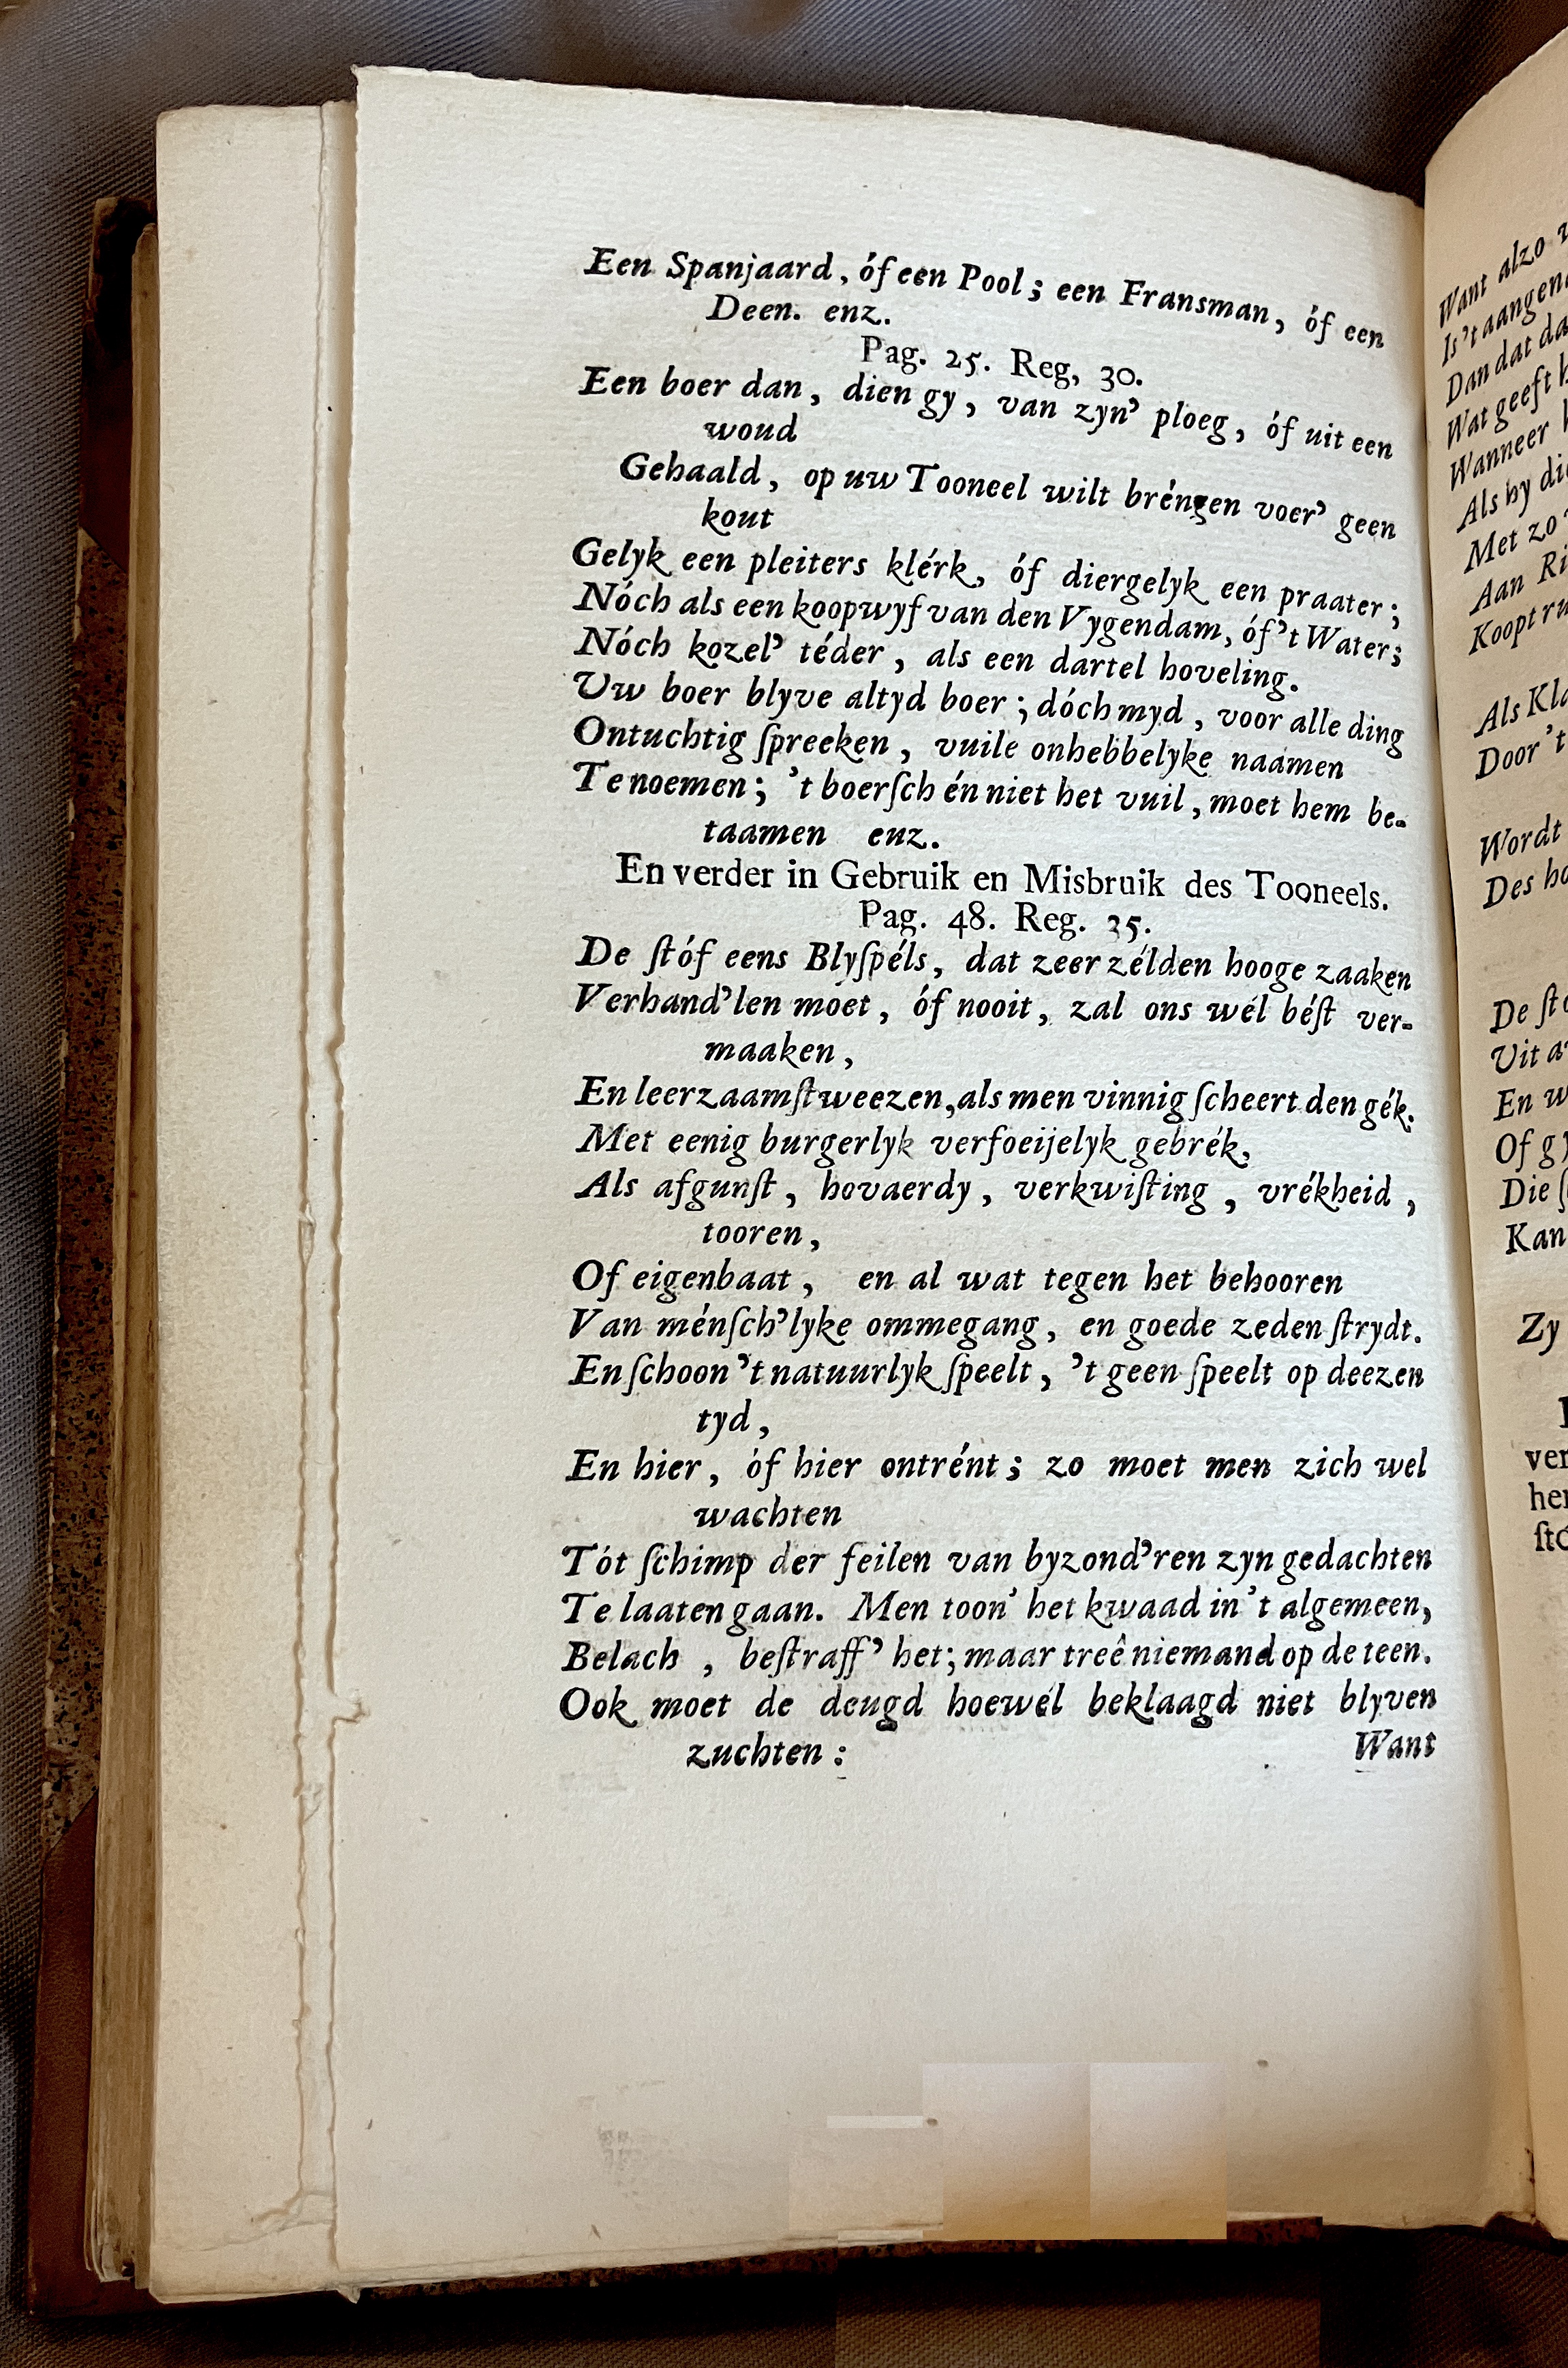 Een Spanjaard, óf een Pool; een Fransman, óf een
Deen. enz.
Pag. 25. Reg, 30.
Een boer dan, dien gy, van zyn’ ploeg, óf uit een
woud
Gehaald, op uw Tooneel wilt bréngen voer’ geen
kout
Gelyk een pleiters klérk, óf diergelyk een praater;
Nóch als een koopwyf van den Vygendam, óf ’t Water;
Nóch kozel’ téder, als een dartel hoveling.
Uw boer blyve altyd boer; dóch myd, voor alle ding
Ontuchtig ſpreeken, vuile onhebbelyke naamen
Te noemen; ’t boerſch én niet het vuil, moet hem be-
taamen enz.
En verder in Gebruik en Misbruik des Tooneels.
Pag. 48. Reg. 35.
De ſtóf eens Blyſpéls, dat zeer zélden hooge zaaken
Verhand’len moet, óf nooit, zal ons wél béſt ver-
maaken,
En leerzaamſt weezen, als men vinnig ſcheert den gék.
Met eenig burgerlyk verfoeijelyk gebrék,
Als afgunſt, hovaerdy, verkwiſting, vrékheid,
tooren,
Of eigenbaat, en al wat tegen het behooren
Van ménſch’lyke ommegang, en goede zeden ſtrydt.
En ſchoon ’t natuurlyk ſpeelt, ’t geen ſpeelt op deezen
tyd,
En hier, óf hier ontrént; zo moet men zich wel
wachten
Tót ſchimp der feilen van byzond’ren zyn gedachten
Te laaten gaan. Men toon’ het kwaad in ’t algemeen,
Belach, beſtraff’ het; maar treê niemand op de teen.
Ook moet de deugd hoewél beklaagd niet blyven
zuchten:
Want
Want alzo
Is ’t aangen
Dan dat da
Wat geeft
Wanneer
Als hy di
Met zo
Aan Ri
Koopt ru
Als Kla
Door ’t
Wordt
Des ho
De ſto
Uit a
En w
Of g
Die
Kan
Zy
ver
her
ſtó